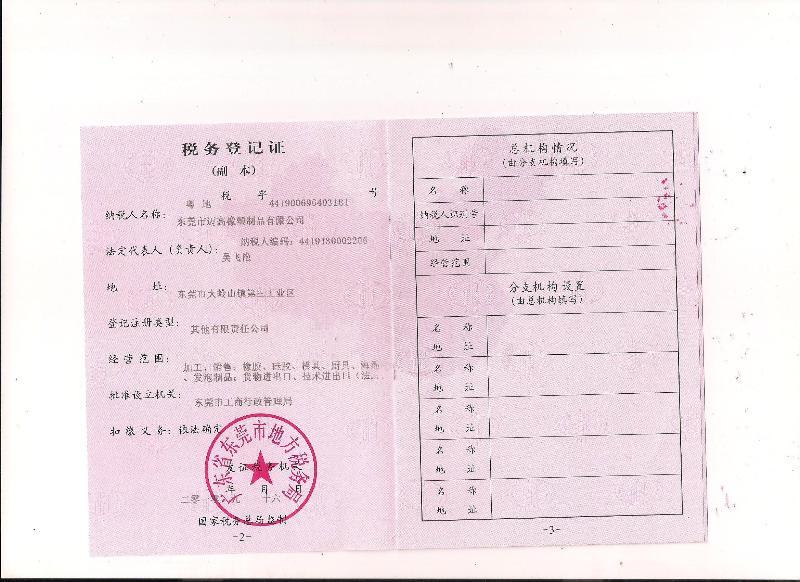 税务登记证
(副 本)
粤 地 税 字 441900696403161 号
纳税人名称:
东莞市 橡塑制品有限公司
纳税人编码:4419480002206
法定代表人(负责人):
吴飞艳
地 址:
东莞市大岭山镇第三工业区
登记注册类型:
其他有限责任公司
经营范围:
加工、销售:橡胶、硅胶、模具、厨具、海绵
、发泡制品;货物进出口、技术进出口(法…
批准设立机关:
东莞市工商行政管理局
扣缴义务: 依法确定
广东省东莞市地方税务局
发证税务机关
年 月 日
国家税务总局监制
-2-
总机构情况
(由分支机构填写)
名 称
纳税人识别号
地 址
经营范围
分支机构设置
(由总机构填写)
名 称
地 址
名 称
地 址
名 称
地 址
名 称
地 址
名 称
地 址
-3-